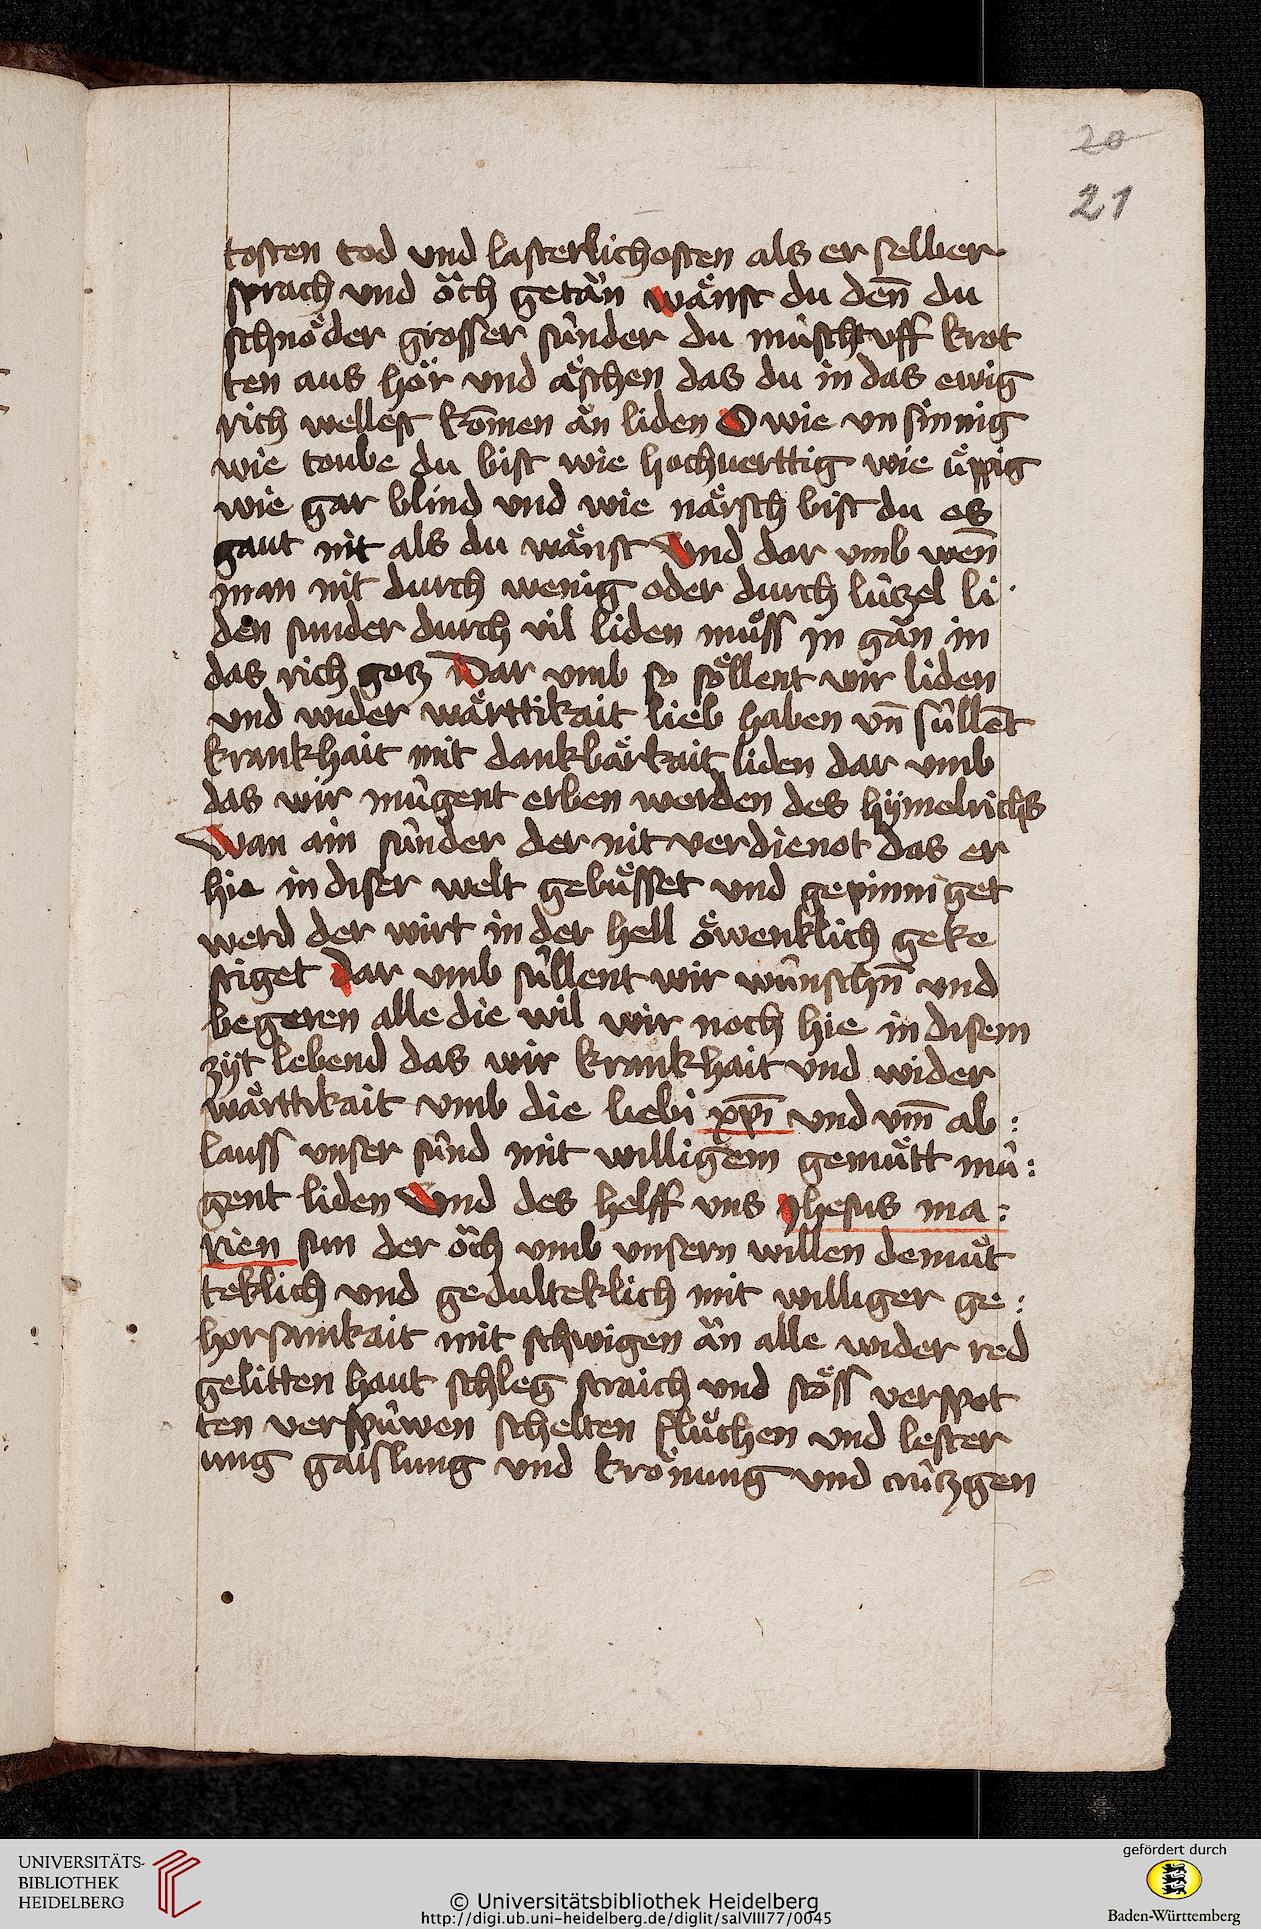 20
21
tosten tod und lasterlichosten als er selber
sprach und o̊ch getăn wänst du den̄ du
schnöder grosser sûnder du mûscht uff krot
ten aus hör und äschen das du in das ewig
rich wellest kom̄en ăn liden O wie unsinnig
wie toube du bist wie hochuerttig wie üppig
wie gar blind und wie närsch bist du es
gaut nit als du wänst Und dar umb wen̄
man nit durch wenig oder durch lûtzel li
den sunder durch vil liden müss in găn in
das rich gotz Dar umb so söllent wir liden
und wider wärttikait lieb haben vn̄ sûllent
krankhait mit dankbärkait liden dar umb
das wir mûgent erben werden des hÿmelrichs
Wan ain sûnder der nit verdienot das er
hie in diser welt gebüsset und gepinniget
werd der wirt in der hell öwenklich geke
stiget Dar umb sûllent wir wûnschn̄ und
begeren alle die wil wir noch hie in disem
zÿt lebend das wir krankhait und wider
wärttikait umb die liebi xp̄i und vm̄ ab :
lauss unser sûnd mit willigem gemütt mû :
gent liden Und des helff uns Jhesus ma :
rien sun der o̊ch umb unsern willen demüt
teklich und gedulteklich mit williger ge :
horsamkait mit schwigen ăn alle wider red
gelitten haut schleg straich und stöss verspot
ten verspûwen schelten flüchen und lester
ung gaislung und krönung und crûtzgen
UNIVERSITÄTS-
BIBLIOTHEK
HEIDELBERG
© Universitätsbibliothek Heidelberg
http://digi.ub.uni-heidelberg.de/diglit/salVIII77/0045
gefördert durch
Baden-Württemberg